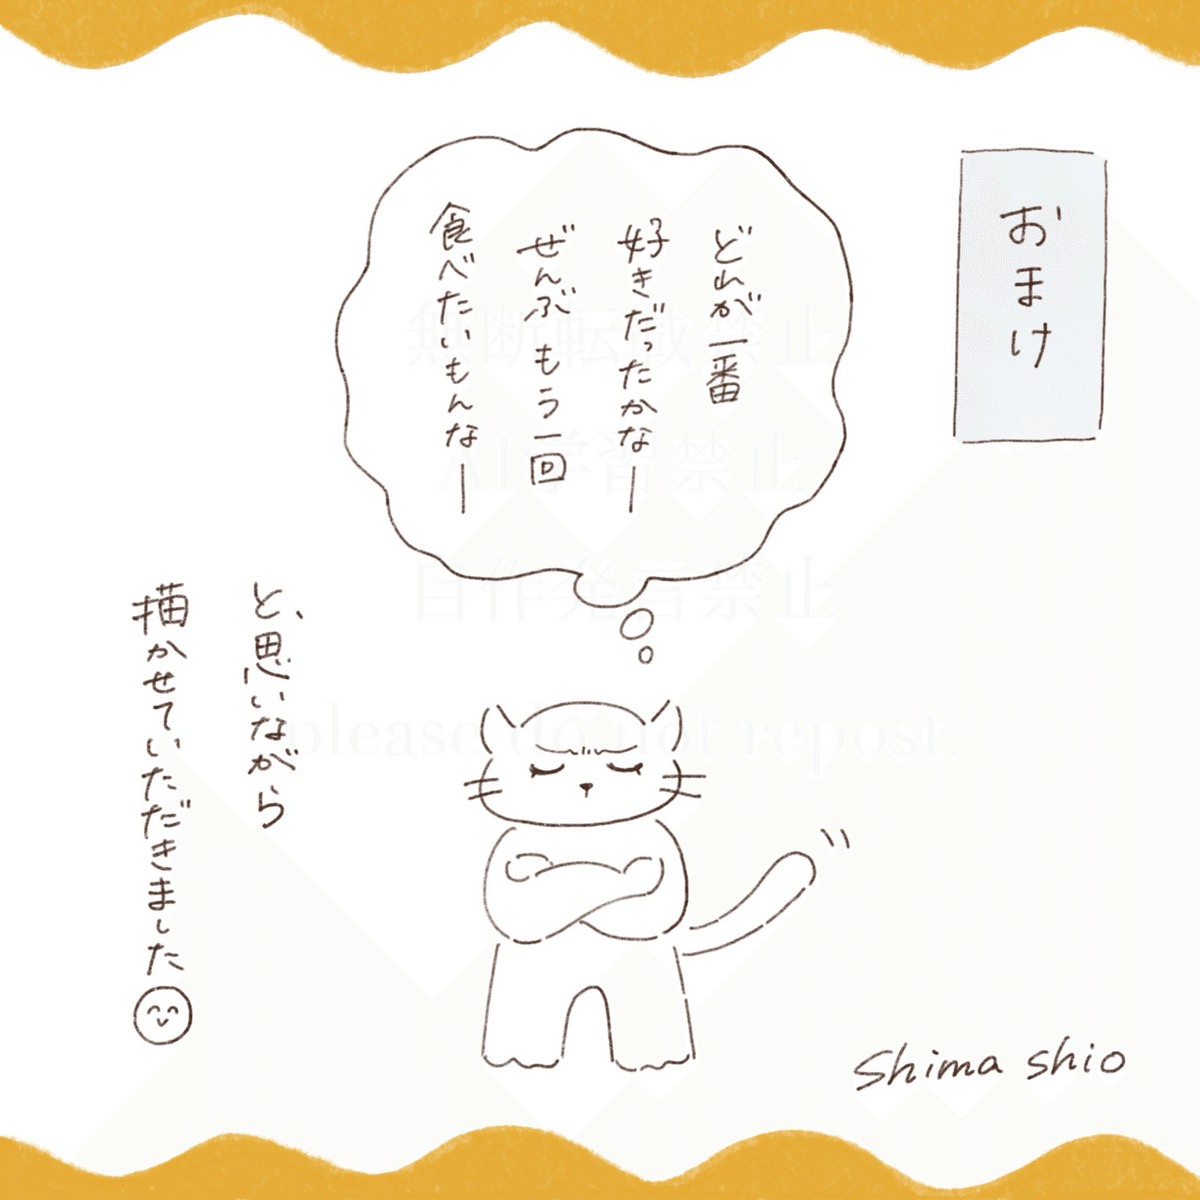 おまけ
どれが一番
好きだったかなー
ぜんぶ もう一回
食べたいもんなー
と、思いながら
描かせていただきました
無断転載禁止
AI学習禁止
自作発言禁止
please do not repost.
Shima shio